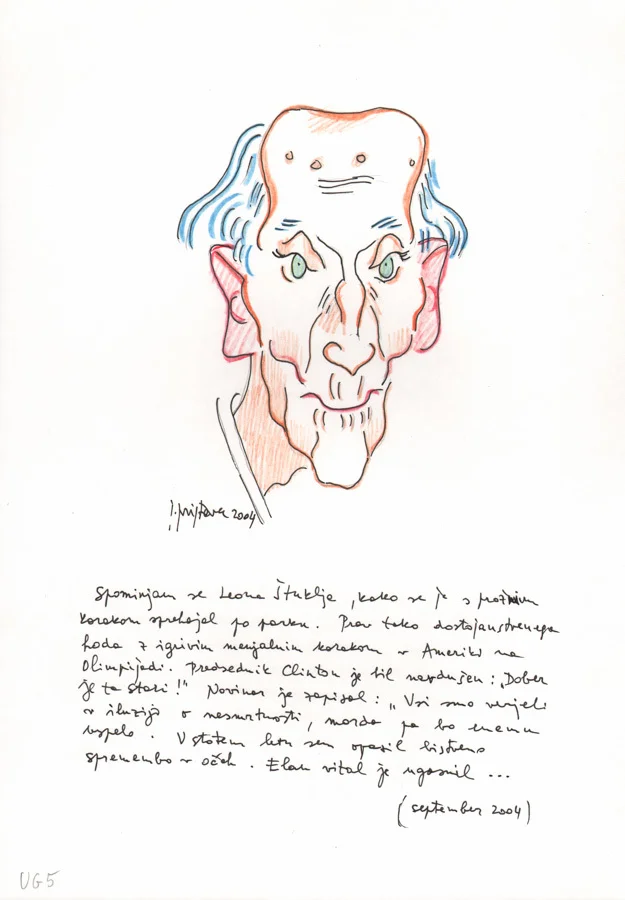 J. Pristava 2004
Spominjam se Leona Štuklja, kako se je s prožnim
korakom sprehajal po parku. Prav tako dostojanstvenega
hoda z igrivim menjalnim korakom v Ameriki na
Olimpijadi. Predsednik Clinton je bil navdušen: "Dober
je ta stari!" Novinar je zapisal: "Vsi smo verjeli
v iluzijo o nesmrtnosti, morda pa bo enemu
uspelo. V stotem letu sem opazil bistveno
spremembo v očeh. Elan vital je ugasnil ...
(september 2004)
UG5